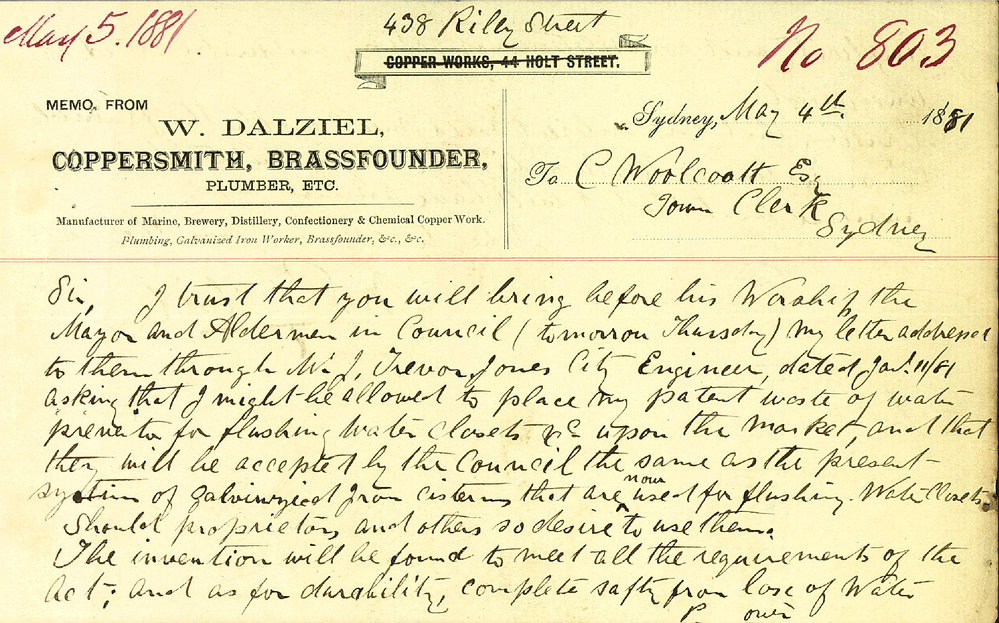 May 5. 1881
438 Riley Street
No 803
COPPER WORKS, 44 HOLT STREET.
MEMO. FROM
W. DALZIEL,
COPPERSMITH, BRASSFOUNDER,
PLUMBER, ETC.
Manufacturer of Marine, Brewery, Distillery, Confectionery & Chemical Copper Work.
Plumbing, Galvanized Iron Worker, Brassfounder, &c., &c.
Sydney, May 4th 1881
To C Woolcott Esq
Town Clerk
Sydney
Sir, I trust that you will bring before his Worship the
Mayor and Aldermen in Council (tomorrow Thursday) my letter addressed
to them through Mr J, Trevor Jones City Engineer, dated Jan. 11/81
asking that I might be allowed to place my patent waste of water
preventor for flushing Water Closets &c upon the Market, and that
they will be accepted by the Council the same as the present
system of Galvinyied Iron cisterns that are now used for flushing Water Closets
Should proprietors and others so desire to use them.
The invention will be found to meet all the requirements of the
Act; and as for durability, complete safty from lose of Water
over